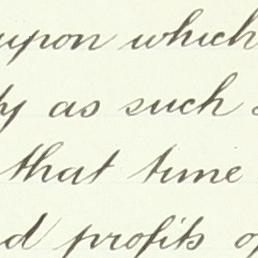 upon which
as such
that time
profits